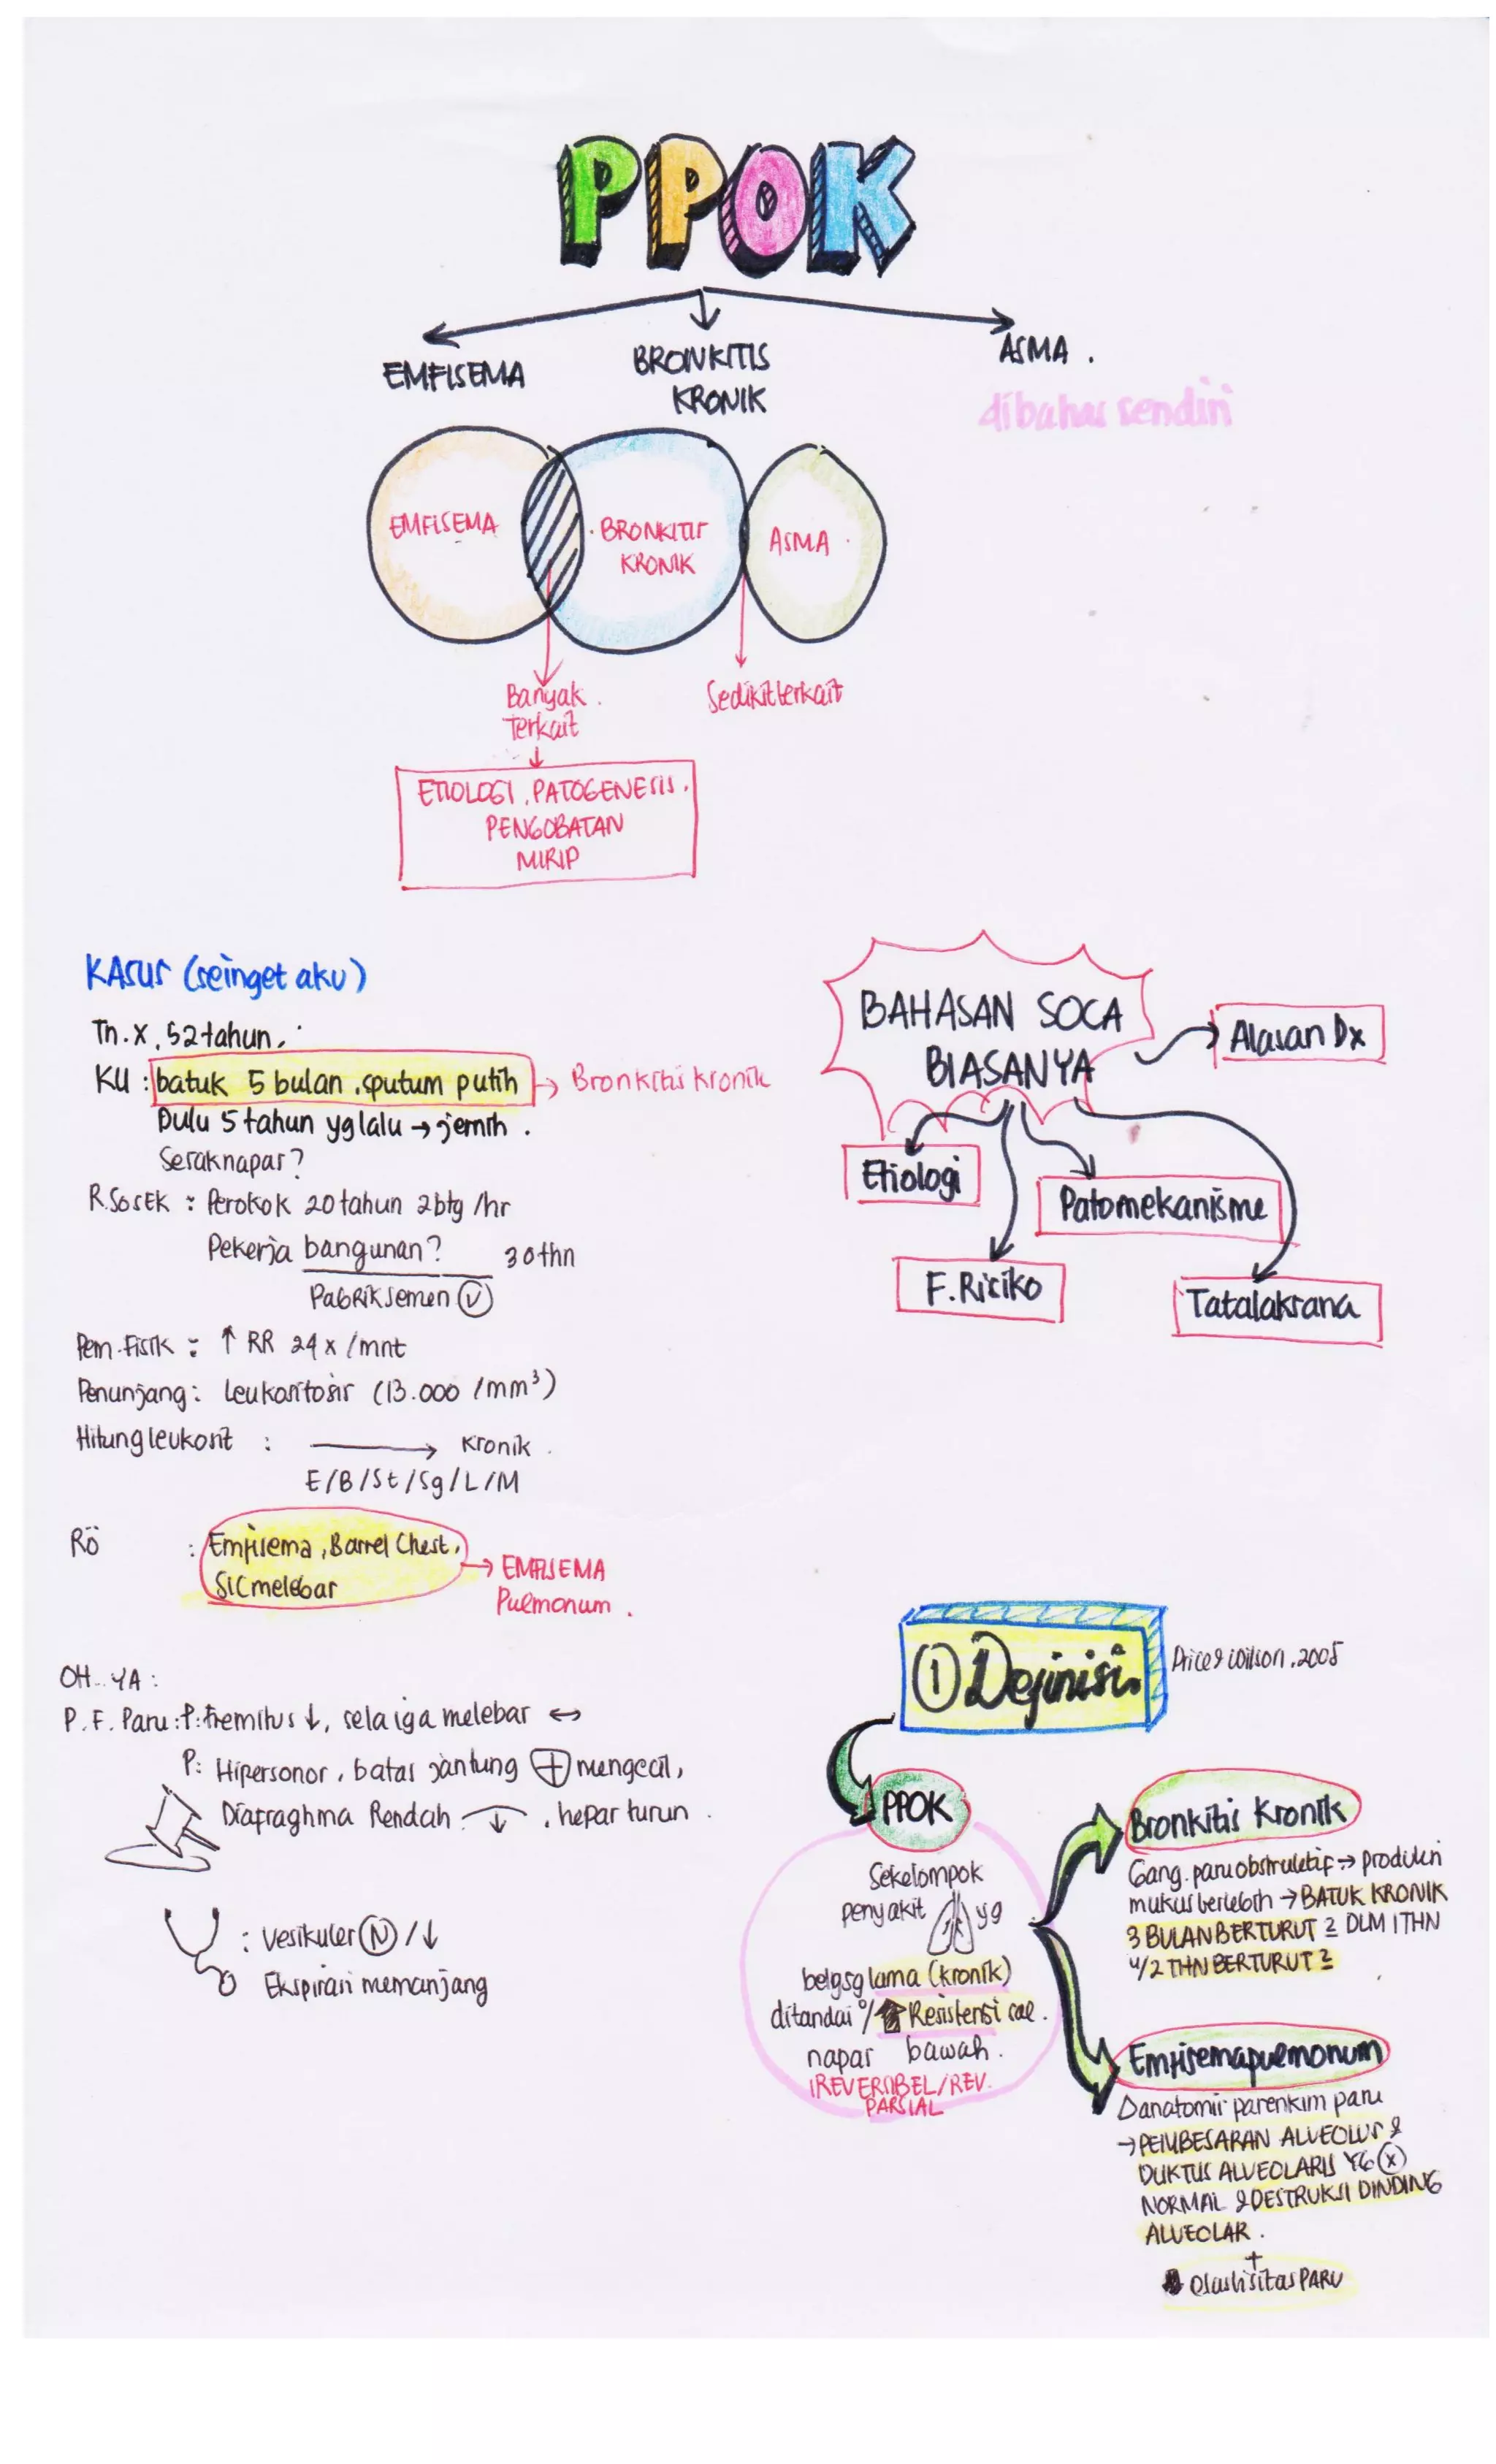 PPOK
EMFISEMA
BRONKITIS
KRONIK
ASMA.
dibahas sendiri
EMFISEMA
BRONKITIS
KRONIK
ASMA
Banyak
terkait
Sedikit terkait
ETIOLOGI, PATOGENESIS,
PENGOBATAN
MIRIP
KASUS (seinget aku)
Tn. X, 52 tahun,
KU : batuk 5 bulan, sputum putih → Bronkitis kronik
Dulu 5 tahun yg lalu → jernih.
Sesak napas?
R. SosEk : Perokok 20 tahun 2 btg /hr
Pekerja bangunan? 30 thn
Pabrik semen (V)
Pem. Fisik : ↑ RR 24 x /mnt
Penunjang : Leukositosis (13.000 /mm³)
Hitung leukosit : → Kronik.
E/B/St/Sg/L/M
Rö : Emfisema, Barrel Chest,
SIC melebar
→ EMFISEMA
Pulmonum.
OH.. YA :
P. F. Paru : P: fremitus ↓, sela iga melebar ↔
P: Hipersonor, batas jantung (+) mengecil,
Diafraghma Rendah ↓, hepar turun.
: Vesikuler (N) / ↓
Ekspirasi memanjang
BAHASAN SOCA
BIASANYA
Alasan Dx
Etiologi
Patomekanisme
F. Risiko
Tatalaksana
① Definisi.
Price & Wilson, 2005
PPOK
Sekelompok
penyakit yg
belgsg lama (kronik)
ditandai o/ ↑ Resistensi sal.
napas bawah.
IREVERSIBEL/REV.
PARSIAL
Bronkitis Kronik
Gang. paru obstruktif → produksi
mukus berlebih → BATUK KRONIK
3 BULAN BERTURUT 2 DLM 1 THN
u/ 2 THN BERTURUT 2
Emfisema pulmonum
Δ anatomis parenkim paru
→ PEMBESARAN ALVEOLUS &
DUKTUS ALVEOLARIS YG (X)
NORMAL & DESTRUKSI DINDING
ALVEOLAR.
+
elastisitas PARU